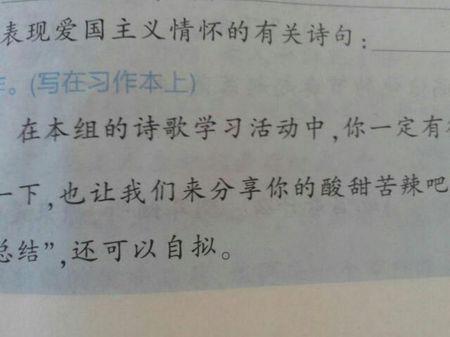 表现爱国主义情怀的有关诗句:
。(写在习作本上)
在本组的诗歌学习活动中,你一定有
一下,也让我们来分享你的酸甜苦辣吧
总结”,还可以自拟。